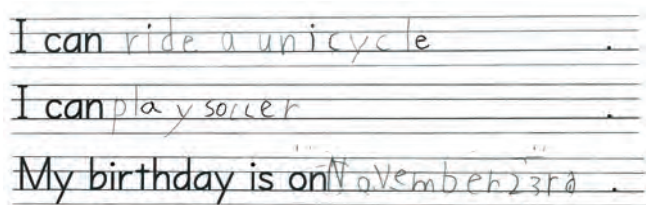 I can ride a unicycle.
I can play soccer.
My birthday is on November 23rd.